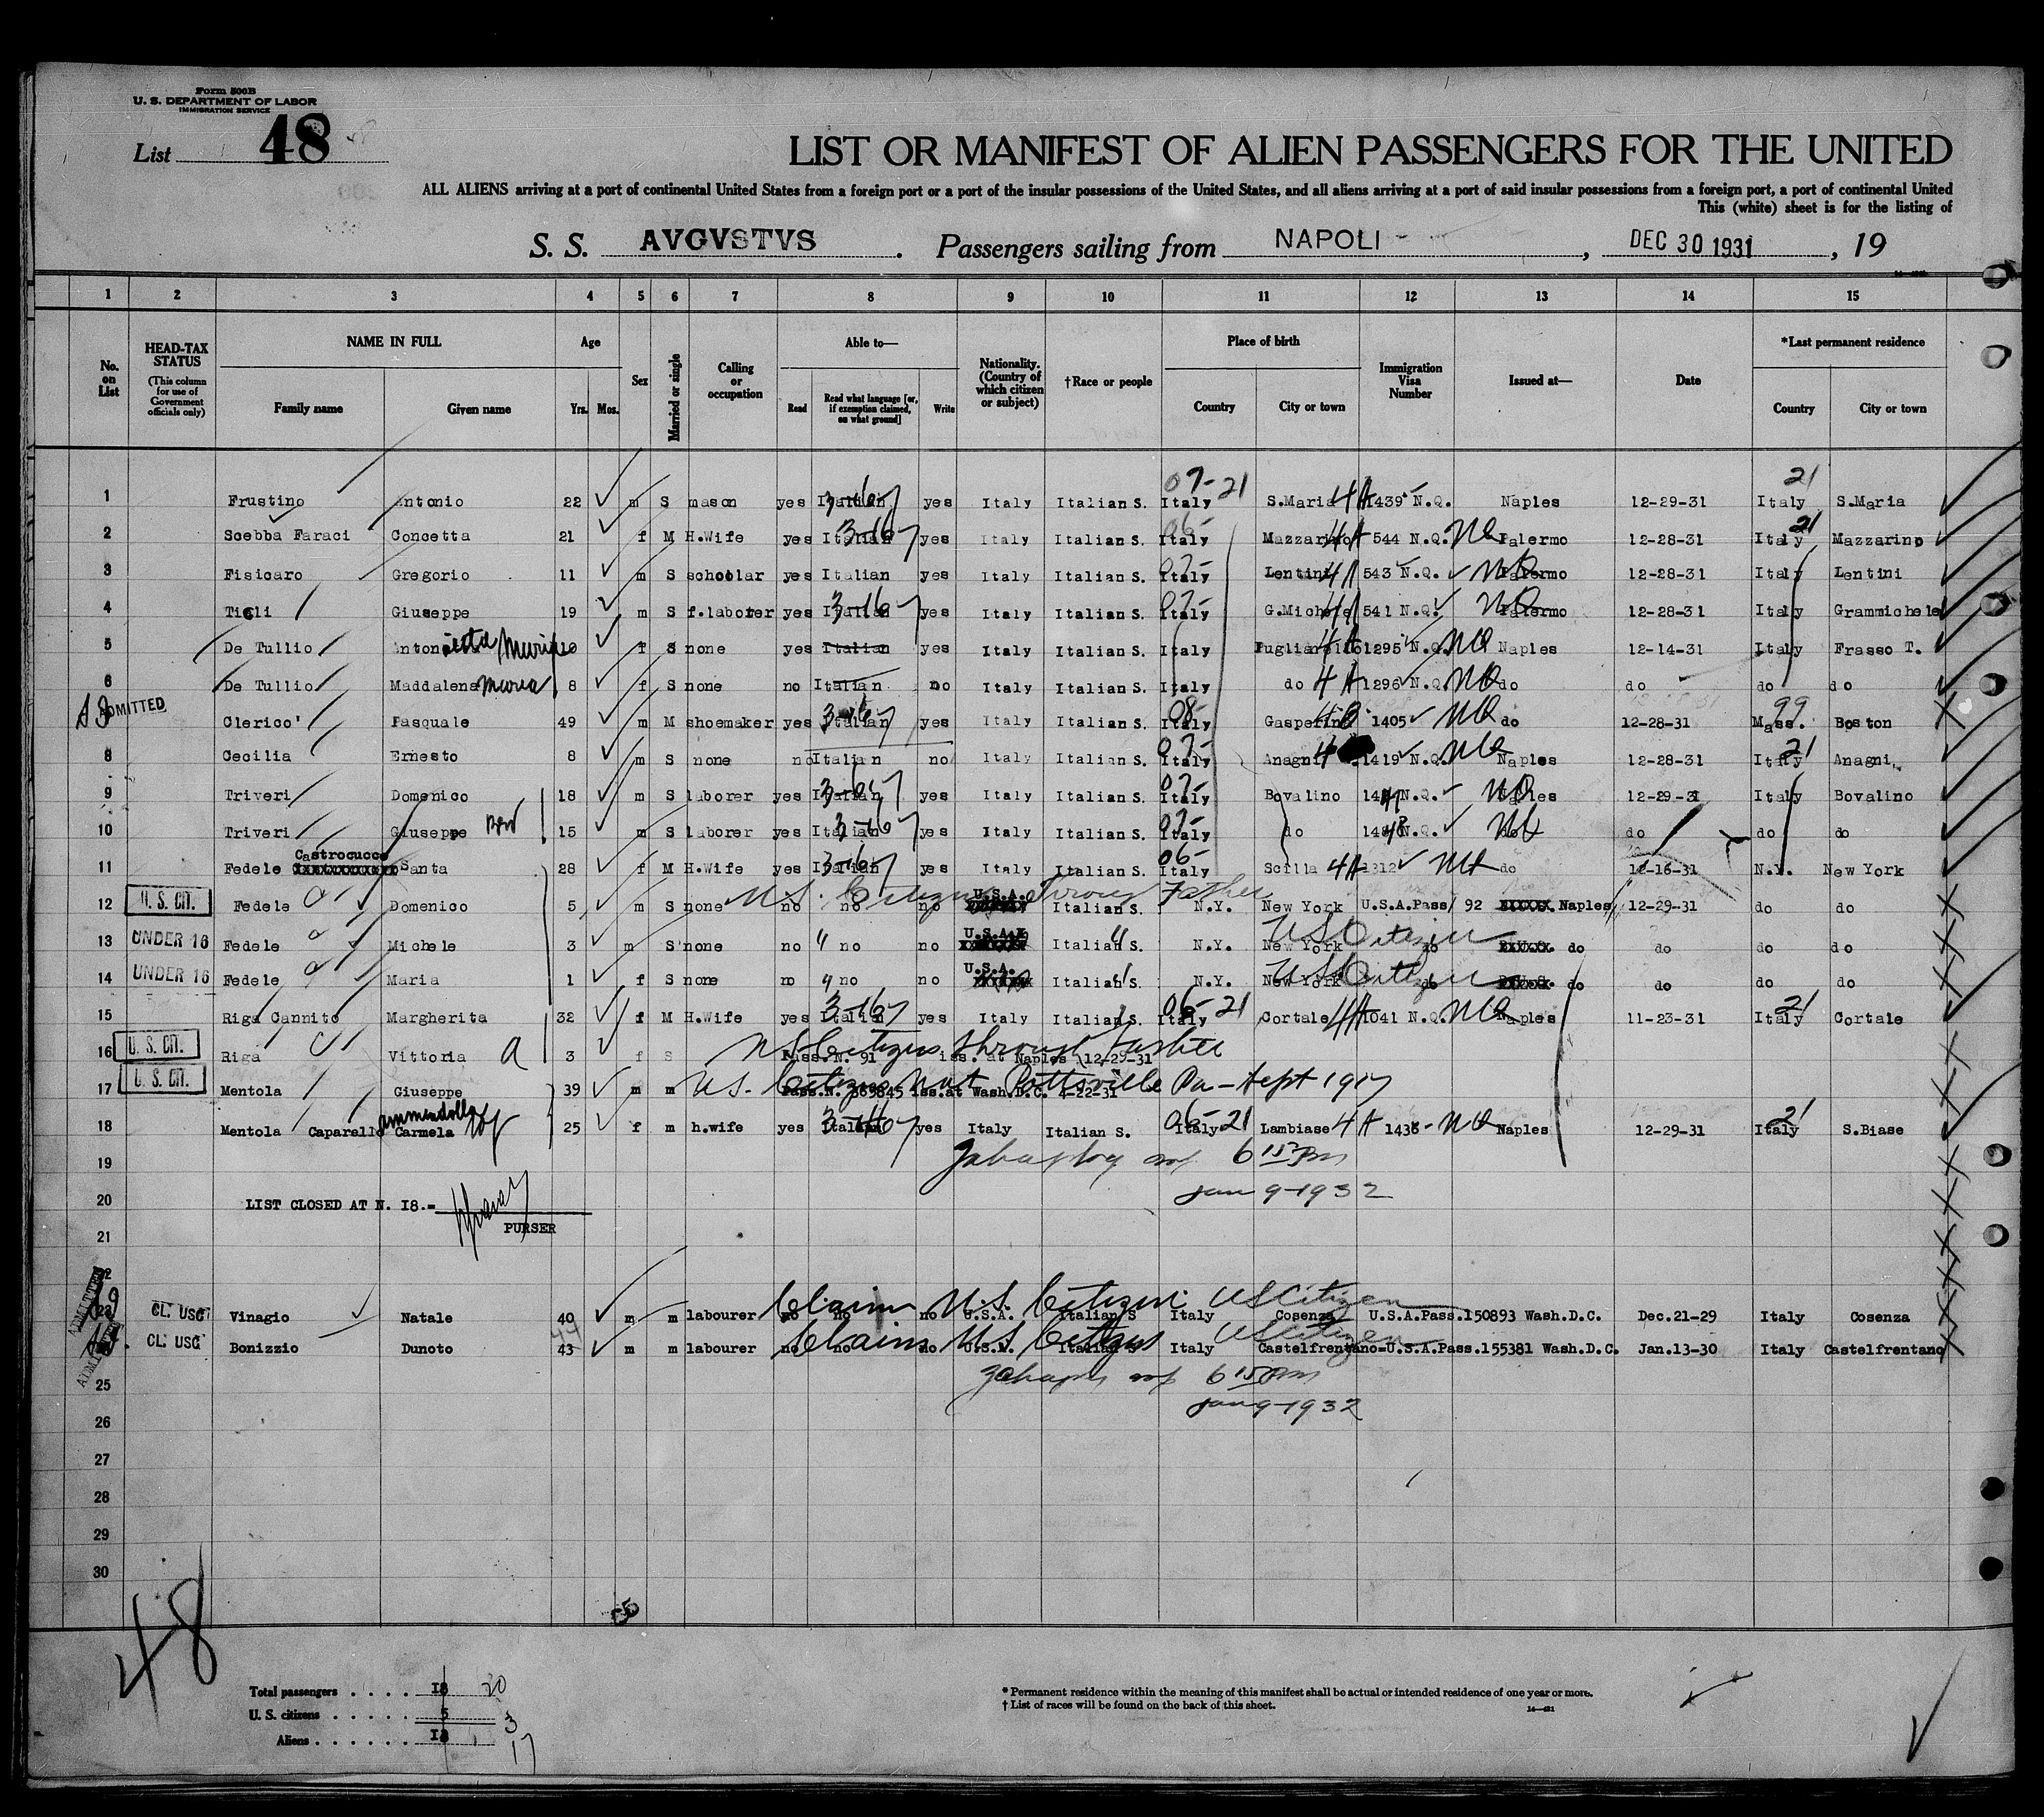 Form 500B
U. S. DEPARTMENT OF LABOR
IMMIGRATION SERVICE
List 48
LIST OR MANIFEST OF ALIEN PASSENGERS FOR THE UNITED
ALL ALIENS arriving at a port of continental United States from a foreign port or a port of the insular possessions of the United States, and all aliens arriving at a port of said insular possessions from a foreign port, a port of continental United
This (white) sheet is for the listing of
S. S. AVGVSTVS . Passengers sailing from NAPOLI , DEC 30 1931 , 19
1 2 3 4 5 6 7 8 9 10 11 12 13 14 15
No. on List
HEAD-TAX STATUS (This column for use of Government officials only)
NAME IN FULL Family name Given name
Age Yrs. Mos.
Sex
Married or single
Calling or occupation
Able to— Read Read what language [or, if exemption claimed, on what ground] Write
Nationality. (Country of which citizen or subject)
†Race or people
Place of birth Country City or town
Immigration Visa Number
Issued at—
Date
*Last permanent residence Country City or town
07- 21 21
1 Frustino Antonio 22 m S mason yes Italian 3-16 yes Italy Italian S. Italy S.Maria 4A 1439 N.Q. Naples 12-29-31 Italy S.Maria
2 Scebba Faraci Concetta 21 f M H.Wife yes Italian 3-16 yes Italy Italian S. Italy Mazzarino 4A 544 N.Q. NQ Palermo 12-28-31 Italy 21 Mazzarino
3 Fisicaro Gregorio 11 m S schoolar yes Italian yes Italy Italian S. Italy Lentini 4A 543 N.Q. NQ Palermo 12-28-31 Italy Lentini
4 Ticli Giuseppe 19 m S f.laborer yes Italian 3-16 yes Italy Italian S. Italy G.Michele 4A 541 N.Q. NQ Palermo 12-28-31 Italy Grammichele
5 De Tullio Antonietta f S none yes Italian yes Italy Italian S. Italy 4A 1295 N.Q. NQ Naples 12-14-31 Italy Frasso T.
6 De Tullio Maddalena Maria 8 f S none no Italian no Italy Italian S. Italy do 4A 1296 N.Q. NQ do do do do
ADMITTED Clerico' Pasquale 49 m M shoemaker yes Italian yes Italy Italian S. 08- Italy Gasperina 1405 NQ do 12-28-31 Mass. 99 Boston
8 Cecilia Ernesto 8 m S none no Italian no Italy Italian S. 07- Italy Anagni 4 1419 N.Q. NQ Naples 12-28-31 Italy 21 Anagni
9 Triveri Domenico 18 m S laborer yes Italian yes Italy Italian S. 07- Italy Bovalino N.Q. NQ Naples 12-29-31 Italy Bovalino
10 Triveri Giuseppe Bro 15 m S laborer yes Italian 3-16 yes Italy Italian S. 07- Italy do N.Q. NQ do do do do
Castrocucco
11 Fedele Santa 28 f M H.Wife yes Italian 3-16 yes Italy Italian S. 06- Italy Scilla 4A 1312 do 12-16-31 N.Y. New York
U.S. Citizens Through Father
12 U. S. CIT. Fedele Domenico 5 m S none no no no U.S.A. Italian S. N.Y. New York U.S.A.Pass/ 92 Naples 12-29-31 do do
13 UNDER 16 Fedele Michele 3 m S none no no no U.S.A. Italian S. N.Y. New York US Citizen do do do do do
14 UNDER 16 Fedele Maria 1 f S none no no no U.S.A. Italian S. N.Y. New York US Citizen do do do do do
15 Riga Cannito Margherita 32 f M H.Wife yes Italian 3-16 yes Italy Italian S. 06- 21 Italy Cortale 4A 1041 N.Q. NQ Naples 11-23-31 Italy 21 Cortale
16 U. S. CIT. Riga Vittoria 3 f S US Citizen through father
Pass.N. 91 iss. at Naples 12-29-31
17 U. S. CIT. Mentola Giuseppe 39 m m US. Citizen Nat Pottsville Pa - Sept 1917
Pass.N. 369845 iss.at Wash.D.C. 4-22-31
18 Mentola Caparello Carmela 25 f m h.wife yes Italian 3-16 yes Italy Italian S. 06- 21 Italy Lambiase 4A 1436- NQ Naples 12-29-31 Italy 21 S.Biase
19 6 15 Pm
20 Jan 9-1932
LIST CLOSED AT N. I8.-
PURSER
21
22
23 ADMITTED CL: USC Vinagio Natale 40 m m labourer no no no U.S.A. Italian S Italy Cosenza U.S.A.Pass.150893 Wash.D.C. Dec.21-29 Italy Cosenza
Claims U.S. Citizen US Citizen
ADMITTED CL: USC Bonizzio Dunoto 43 44 m m labourer no no no U.S.A. Italian S Italy Castelfrentano=U.S.A.Pass.155381 Wash.D.C. Jan.13-30 Italy Castelfrentano
Claims US Citizen US Citizen
25 6 15 Pm
26 Jan 9-1932
27
28
29
30
48
Total passengers . . . . 18 20
U. S. citizens . . . . . 5 3
Aliens . . . . . . 17
* Permanent residence within the meaning of this manifest shall be actual or intended residence of one year or more.
† List of races will be found on the back of this sheet.